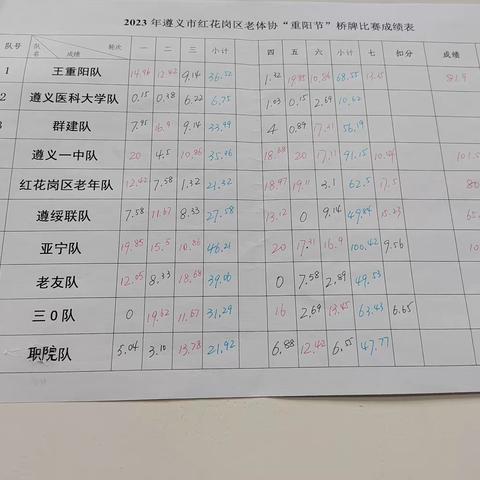 2023年遵义市红花岗区老体协“重阳节”桥牌比赛成绩表
队号 队名 成绩 轮次 一 二 三 小计 四 五 六 小计 七 扣分 成绩
1 王重阳队 14.96 12.42 9.14 36.52 1.32 19.85 10.86 68.55 13.45
2 遵义医科大学队 0.15 0.38 6.22 6.75 1.03 0.15 2.69 10.62
群建队 7.95 16.9 9.14 33.99 4 0.89 17.31 56.19
遵义一中队 20 4.5 10.86 35.36 18.68 20 17.11 91.15 101.5
红花岗区老年队 12.42 7.58 1.32 21.32 18.97 19.11 3.1 62.5 17.5 80
遵绥联队 7.58 11.67 8.33 27.58 13.12 0 9.14 49.84 15.23 65
亚宁队 19.85 15.5 10.86 46.21 20 17.31 16.9 100.42 9.56 10
老友队 12.05 8.33 18.68 39.06 0 7.58 2.89 49.53
三0队 0 19.62 11.67 31.29 16 2.69 13.45 63.43 6.65
职院队 5.04 3.10 13.78 21.92 6.88 12.42 6.55 47.77